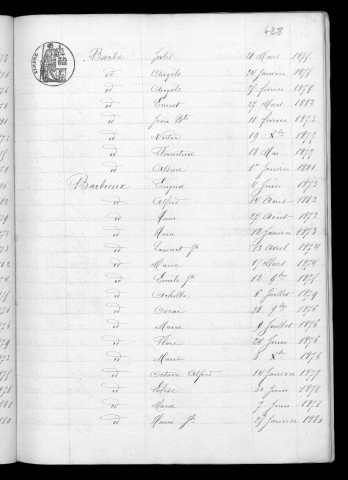 428
Barbe Jules 21 Mars 1875
id Angèle 24 Janvier 1876
id Angèle 27 février 1878
id Ernest 27 Mars 1882
id Jean Bte 11 février 1873
id 19 Xbre 1877
id Florentine 18 Mai 1877
id 1er Janvier 1881
Barbieux Eugène 4 Juin 1872
id Alfred 14 Août 1882
id 27 Août 1872
id Marie 12 Janvier 1873
id 13 Avril 1874
id Marie 17 Mars 1874
id Emile Jh 12 9bre 1875
id Achille 5 Juillet 1879
id Oscar 21 9bre 1876
id Marie 9 Juillet 1876
id Flore 24 Juin 1876
id Marie Xbre 1876
id Octave Alfred 14 Janvier 1879
id Elise 20 Juin 1878
id Marie 7 Juin 1878
id Henri Jh 27 Janvier 1880